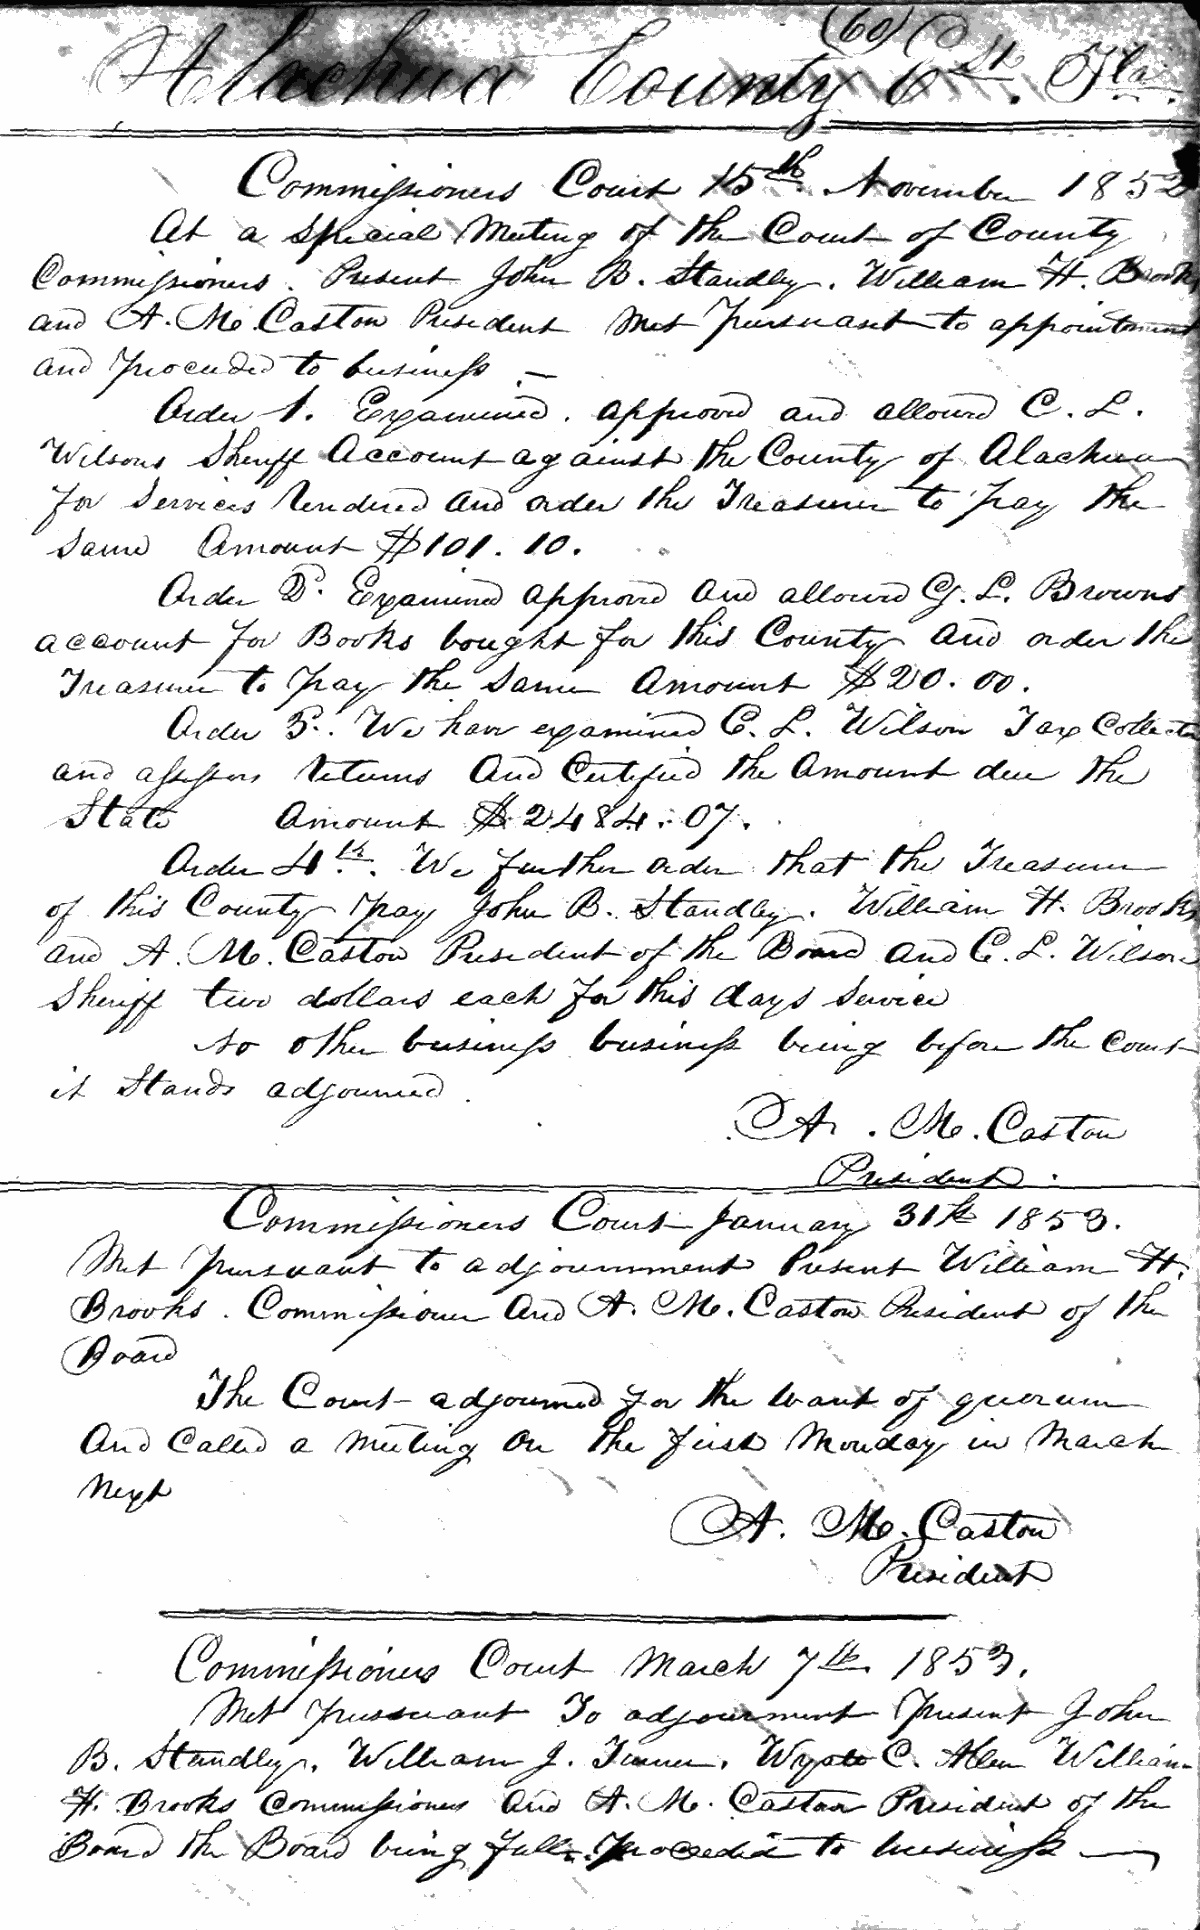 (60)
Alachua County Ct. Fla.
Commissioners Court 15th. November 1852
At a special Meeting of the Court of County
Commissioners. Present John B. Standley. William H. Brooks
and A. Mc.Caston President Met pursuant to appointment
and proceded to business. —
Order 1. Examined. approved and allowed C. L.
Wilsons Sheriff Account against the County of Alachua
for Services rendered and order the Treasurer to pay the
Same Amount $101. 10.
Order 2. Examined approved and allowed G. L. Browns
account for Books bought for this County and order the
Treasurer to pay the Same Amount $20. 00.
Order 3. We have examined C. L. Wilson Tax Collector
and assessors returns And Certified the Amount due the
State Amount $2484. 07.
Order 4th. We further order that the Treasurer
of this County pay John B. Standley. William H. Brooks
and A. Mc. Caston President of the Board and C. L. Wilson
Sheriff two dollars each for this days Service
No other business business being before the Court
it Stands adjourned.
A. Mc. Caston
President.
Commissioners Court January 31st 1853.
Met pursuant to adjournment Present William H.
Brooks. Commissioner And A. Mc. Caston President of the
Board
The Court adjourned for the want of quorum
And Called a meeting On the first Monday in March
Next
A. Mc. Caston
President
Commissioners Court March 7th. 1853.
Met pursuant To adjourment Present John
B. Standley. William J. Turner. Wyatt C. Allen William
H. Brooks Commissioners And A. Mc. Caston President of the
Board the Board being full. proceeded to business —